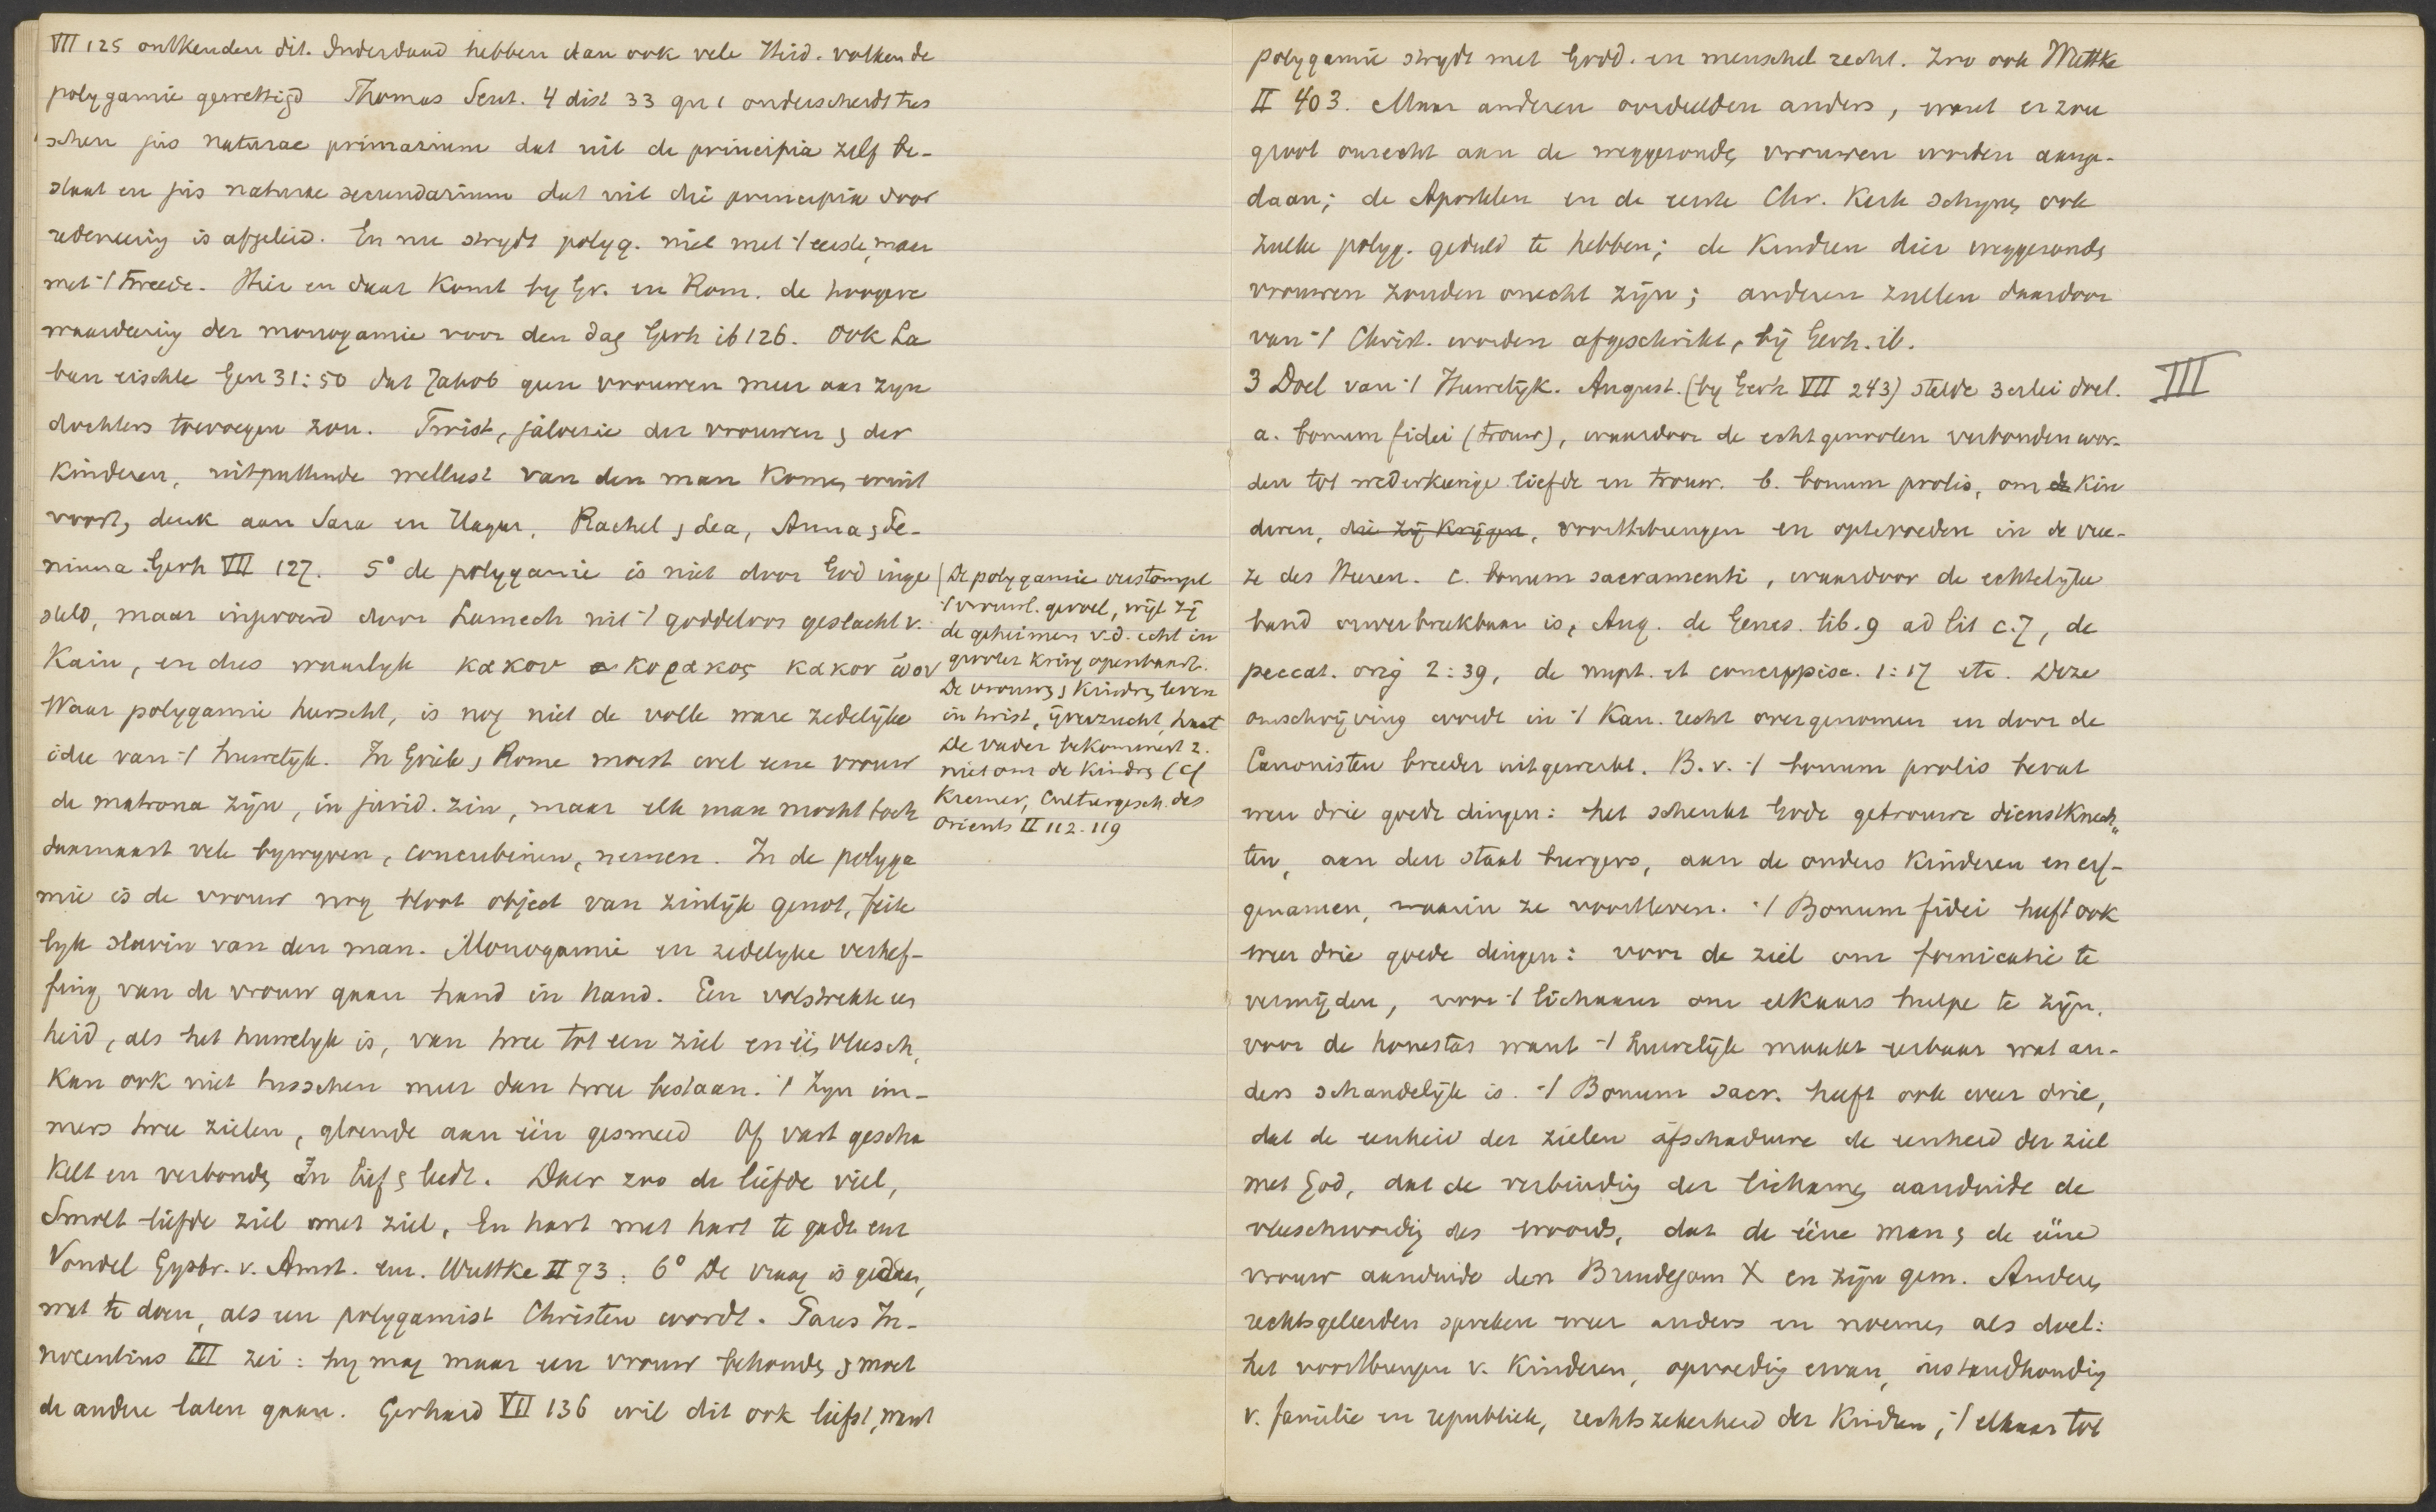 VII 125 ontkenden dit. Inderdaad hebben dan ook vele Heid. volken de
polygamie gewettigd Thomas Sent. 4 dist 33 qu 1 onderscheidt tus
schen jus naturae primarium dat uit de principia zelf be-
staat en jus naturae secundarium dat uit die principia door
redeneering is afgeleid. En nu strydt polyg. niet met 't eerste, maar
met 't tweede. Hier en daar komt by Gr. en Rom. de hoogere
waardeering der monogamie voor den dag Gerh ib 126. Ook La
ban eischte Gen 31:50 dat Jakob geen vrouwen meer aan zyn
dochters toevoegen zou. Twist, jaloesie der vrouwen & der
kinderen, uitputtende wellust van den man komen eruit
voort, denk aan Sara en Hagar, Rachel & Lea, Anna & Pe-
ninna. Gerh VII 127. 5° de polygamie is niet door God inge
steld, maar ingevoerd door Lamech uit 't goddeloos geslacht v.
Kain, en dus waarlyk κακου κορακος κακον ὠον
Waar polygamie heerscht, is nog niet de volle ware zedelijke
idee van 't huwelyk. In Griek & Rome moest wel eene vrouw
de matrona zijn, in jurid. zin, maar elk man mocht toch
daarnaast vele bywyven, concubinen, nemen. In de polyga
mie is de vrouw nog bloot object van zinlijk genot, feite
lyk slavin van den man. Monogamie en zedelyke verhef-
fing van de vrouw gaan hand in hand. Een volstrekte een
heid, als het huwelyk is, van twee tot een ziel en één vleesch,
kan ook niet tusschen meer dan twee bestaan. 't Zyn im-
mers twee zielen, gloende aan één gesmeed Of vast gescha
keld en verbonden In lief & leedt. Daer zoo de liefde viel,
Smolt liefde ziel met ziel, En hart met hart te gader
Vondel Gysbr. v. Amst. Wuttke II 73. 6° De vraag is gedaan,
wat te doen, als een polygamist Christen wordt. Paus In-
nocentius III zei: hy mag maar een vrouw behouden & moet
de andere laten gaan. Gerhard VII 136 wil dit ook liefst, want
De polygamie verstompt
't vrouwl. gevoel, wijl zij
de geheimen v.d. echt in
grooter kring openbaart.
De vrouwen & kinderen leven
in twist, ijverzucht, haat
De vader bekommert z.
niet om de kinderen (cf
Kremer, Culturgesch. des
Orients II 112-119
polygamie strydt met Godd. en menschel recht. Zoo ook Wuttke
II 403. Maar anderen oordeelden anders, want er zou
groot onrecht aan de weggezonden vrouwen worden aange-
daan; de Apostelen en de eerste Chr. Kerk schynen ook
zulke polyg. geduld te hebben; de kinderen dier weggezonden
vrouwen zouden onecht zijn; anderen zullen daardoor
van 't Christ. worden afgeschrikt, bij Gerh. ib.
3 Doel van 't Huwelijk. August. (by Gerh VII 243) stelde 3erlei doel. III
a. bonum fidei (trouw), waardoor de echtgenooten verbonden wor-
den tot wederkeerige liefde en trouw. b. bonum prolis, om de kin
deren, die zij krijgen, voorttebrengen en optevoeden in de vree-
ze des Heren. c. bonum sacramenti, waardoor de echtelyke
band onverbreekbaar is, Aug. de Genes. lib. 9 ad lit c. 7, de
peccat. orig 2:39, de nupt. et concuppisc. 1:17 etc. Deze
omschrijving wordt in 't Kan. recht overgenomen en door de
Canonisten breeder uitgewerkt. B.v. 't bonum prolis bevat
weer drie goede dingen: het schenkt Gode getrouwe dienstknech-
ten, aan den staat burgers, aan de ouders kinderen en erf-
genamen, waarin ze voortleven. 't Bonum fidei heeft ook
weer drie goede dingen: voor de ziel om fornicatie te
vermijden, voor 't lichaam om elkaars hulpe te zijn,
voor de honestas want 't huwelijk maakt eerbaar wat an-
ders schandelijk is. 't Bonum sacr. heeft ook weer drie,
dat de eenheid der zielen afschaduwe de eenheid der ziel
met God, dat de verbinding der lichamen aanduide de
vleeschwording des Woords, dat de ééne man & de ééne
vrouw aanduide den Bruidegom X en zijn gem. Andere
rechtsgeleerden spreken weer anders en noemen als doel:
het voortbrengen v. kinderen, opvoeding ervan, instandhouding
v. familie en republiek, rechtszekerheid der kindren, 't elkaar tot